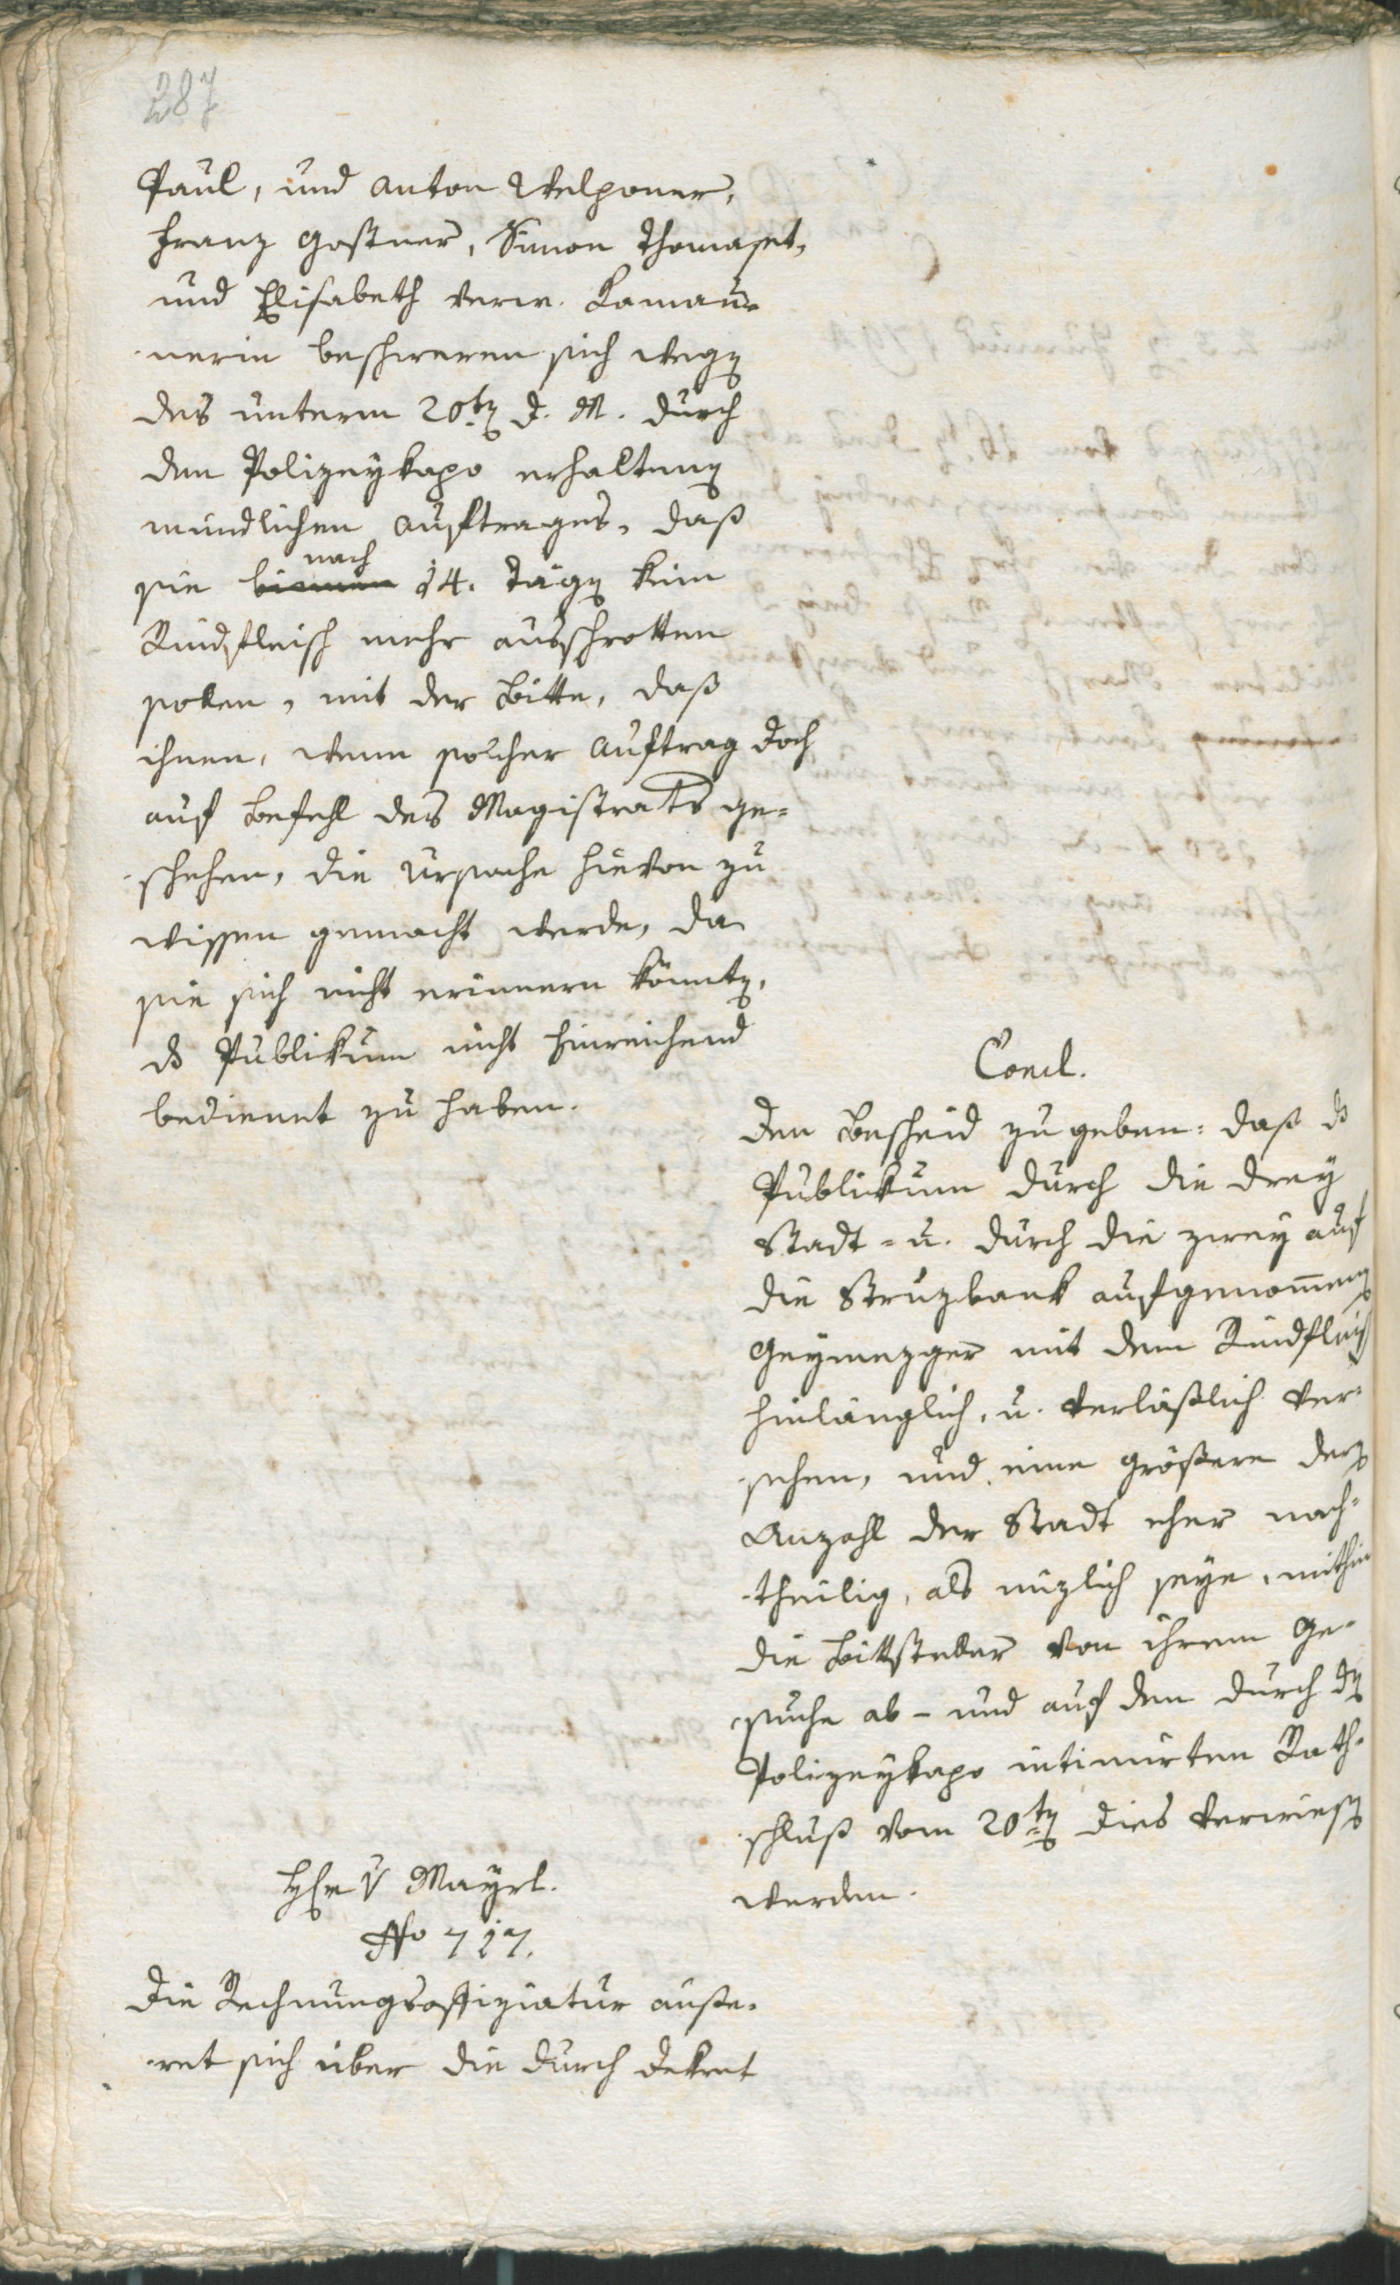 287
Paul, und Anton Welponer,
Franz Gostner, Simon Thomaset,
und Elisabeth verw. Lamau¬
nerin beschweren sich wegen
des unterm 20ten d. M. durch
den Polizeykapo erhaltenen
mündlichen Auftrages, daß
nach
sie binnen 14. Tägen kein
Rindfleisch mehr ausschrotten
sollen, mit der Bitte, daß
ihnen, wenn solcher Auftrag doch
auf Befehl des Magistrats ge¬
schehen, die Ursache hievon zu
wissen gemacht werde, da
sie sich nicht erinnern könnten,
ds Publikum nicht hinreichend
bedienet zu haben.
Concl.
Den Bescheid zu geben: daß ds
Publikum durch die drey
Stadt- u. durch die zwey auf
die Strüzbank aufgenommenen
Geymezger mit dem Rindfleisch
hinlänglich, u. verläßlich ver¬
sehen, und eine größere der
Anzahl der Stadt eher nach¬
theilig, als nüzlich seye, mithin
die Bittsteller von ihrem Ge¬
suche ab- und auf den durch den
Polizeykapo intimirten Rath¬
schluß vom 20ten dies verwiesen
werden.
Hr v Mayrl.
No 717.
Die Rechnungsoffiziatur äuße¬
ret sich über die durch Dekret